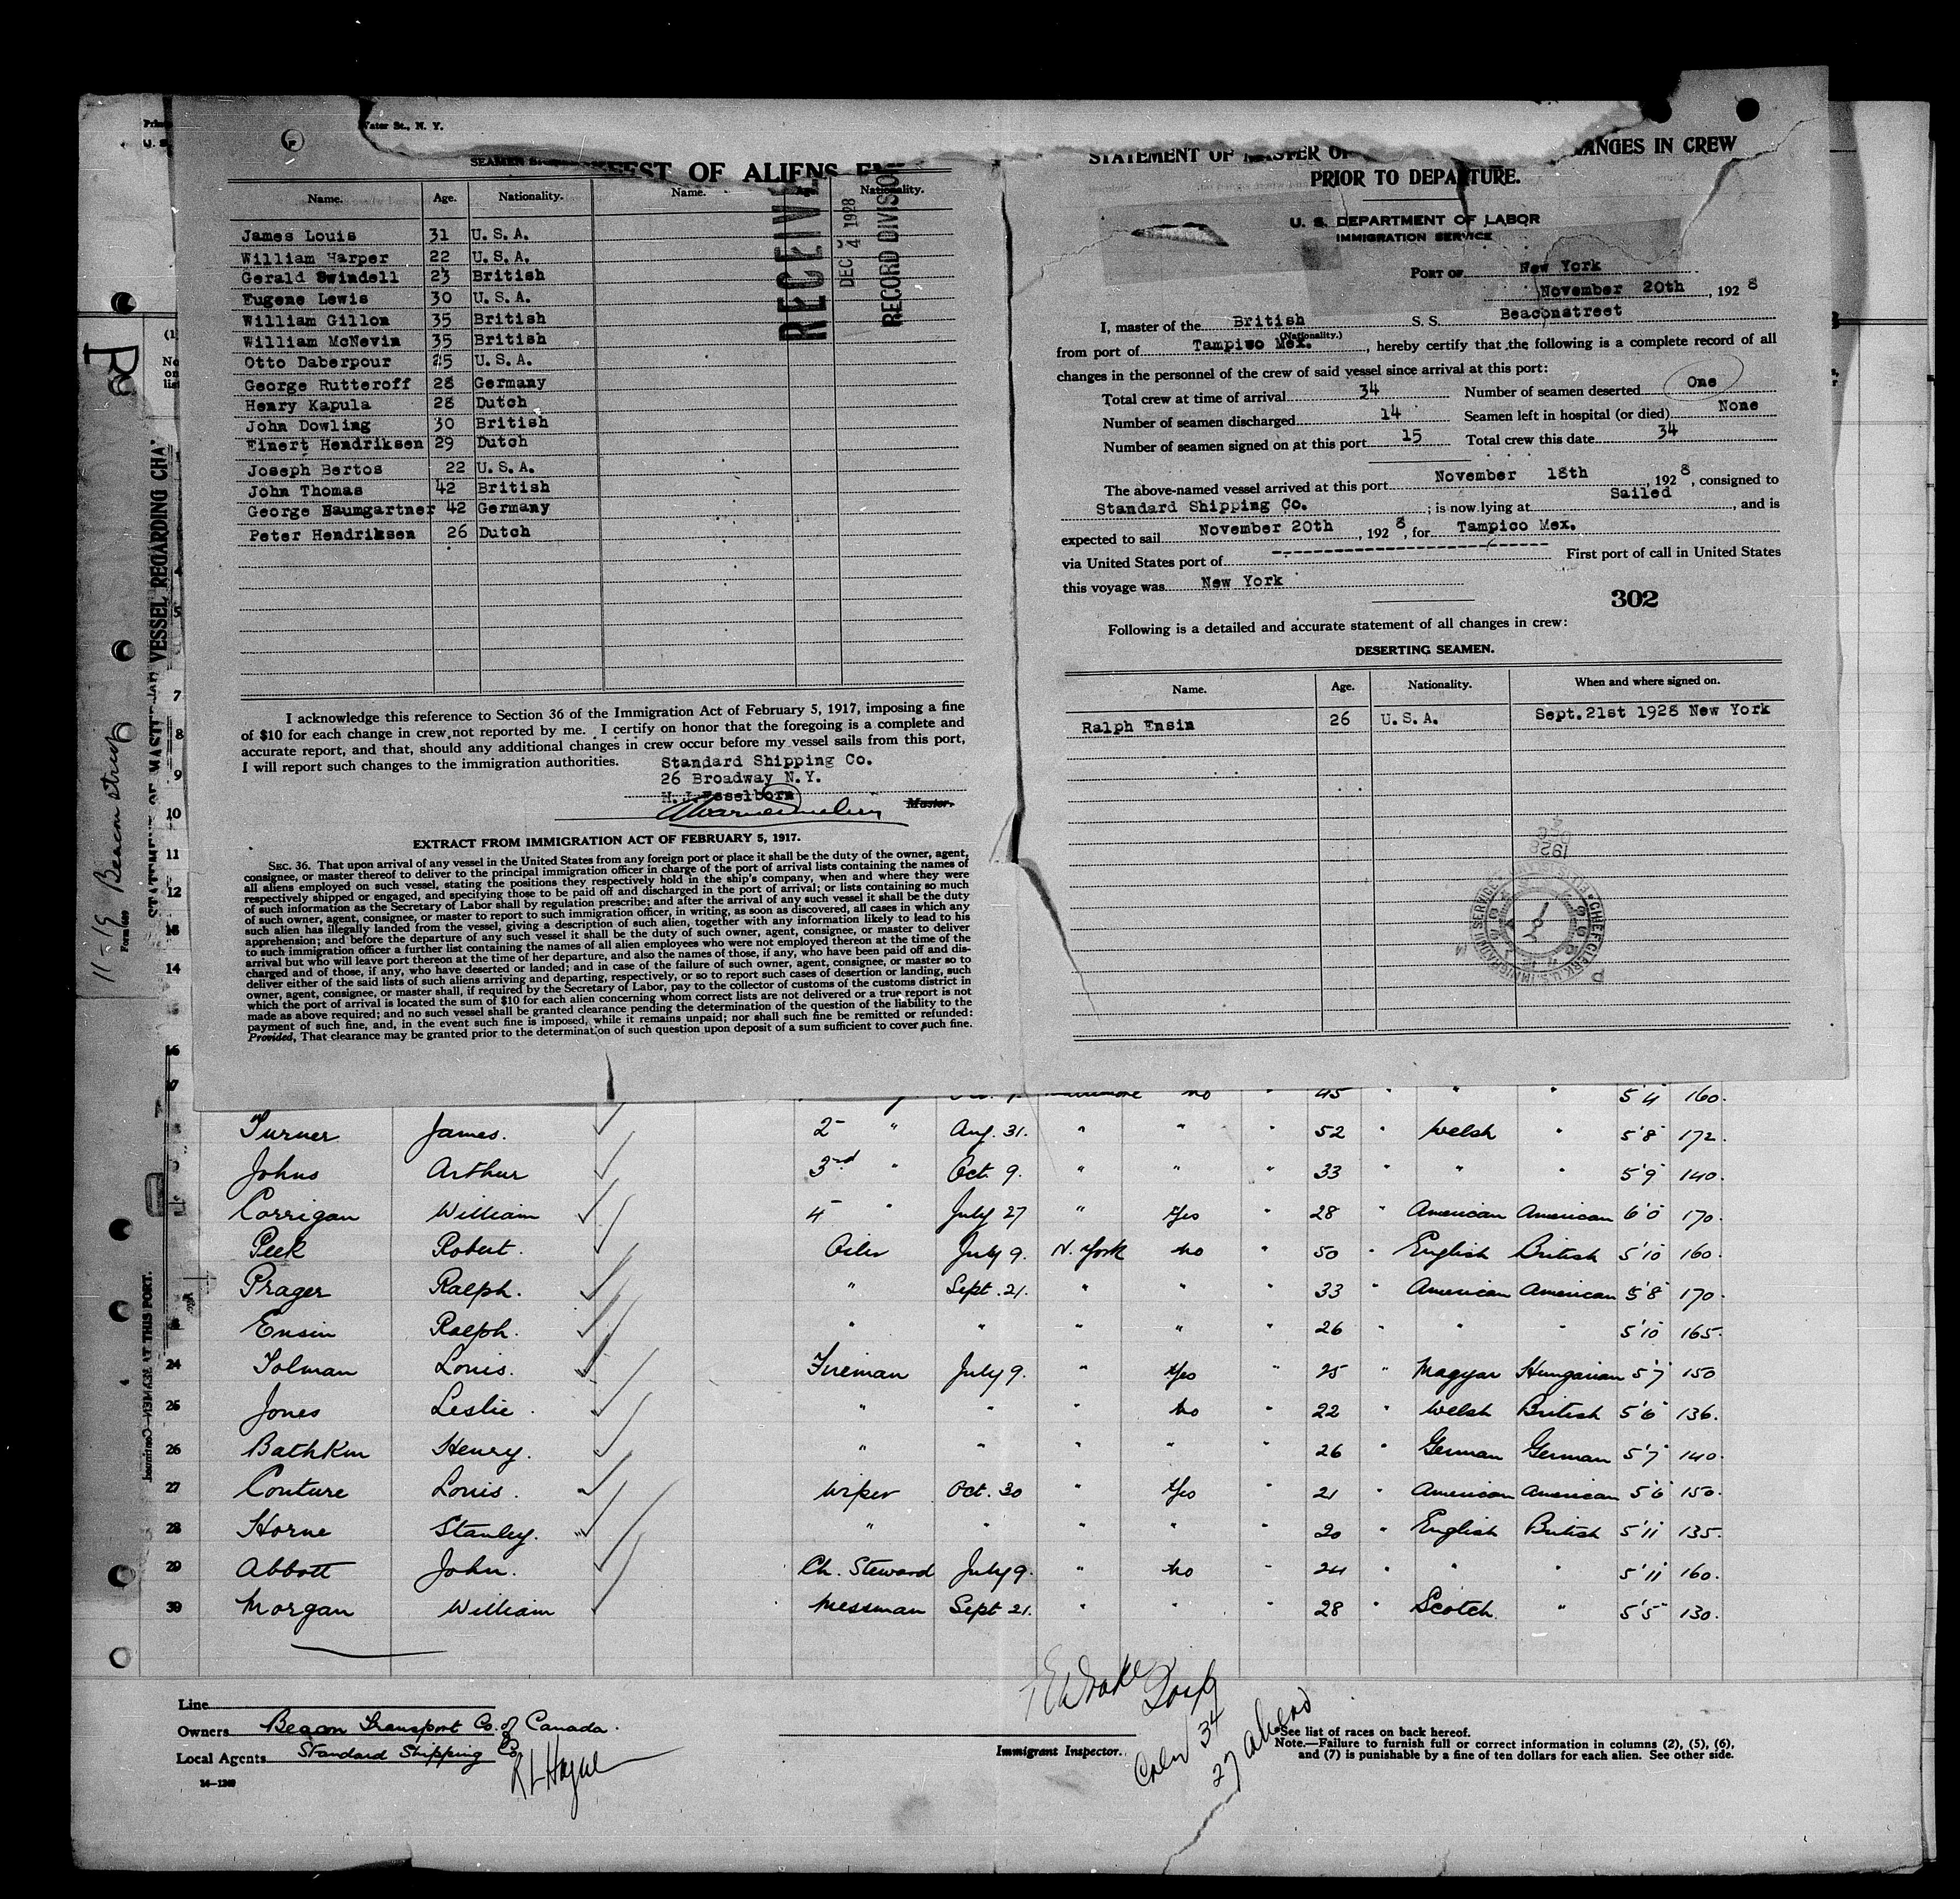 Water St., N. Y.
SEAMEN
FEST OF ALIENS
Name. Age. Nationality. Name. Age. Nationality.
RECEIVE
DEC 4 1928
RECORD DIVISION
James Louis 31 U.S.A.
William Harper 22 U.S.A.
Gerald Swindell 23 British
Eugene Lewis 30 U.S.A.
William Gillon 35 British
William McNevin 35 British
Otto Daberpour 25 U.S.A.
George Rutteroff 28 Germany
Henry Kapula 28 Dutch
John Dowling 30 British
Einert Hendriksen 29 Dutch
Joseph Bertos 22 U.S.A.
John Thomas 42 British
George Baumgartner 42 Germany
Peter Hendriksen 26 Dutch
I acknowledge this reference to Section 36 of the Immigration Act of February 5, 1917, imposing a fine
of $10 for each change in crew not reported by me. I certify on honor that the foregoing is a complete and
accurate report, and that, should any additional changes in crew occur before my vessel sails from this port,
I will report such changes to the immigration authorities.
Standard Shipping Co.
26 Broadway N.Y.
H. J. Esselborn
Master.
EXTRACT FROM IMMIGRATION ACT OF FEBRUARY 5, 1917.
SEC. 36. That upon arrival of any vessel in the United States from any foreign port or place it shall be the duty of the owner, agent,
consignee, or master thereof to deliver to the principal immigration officer in charge of the port of arrival lists containing the names of
all aliens employed on such vessel, stating the positions they respectively hold in the ship's company, when and where they were
respectively shipped or engaged, and specifying those to be paid off and discharged in the port of arrival; or lists containing so much
of such information as the Secretary of Labor shall by regulation prescribe; and after the arrival of any such vessel it shall be the duty
of such owner, agent, consignee, or master to report to such immigration officer, in writing, as soon as discovered, all cases in which any
such alien has illegally landed from the vessel, giving a description of such alien, together with any information likely to lead to his
apprehension; and before the departure of any such vessel it shall be the duty of such owner, agent, consignee, or master to deliver
to such immigration officer a further list containing the names of all alien employees who were not employed thereon at the time of the
arrival but who will leave port thereon at the time of her departure, and also the names of those, if any, who have been paid off and dis-
charged and of those, if any, who have deserted or landed; and in case of the failure of such owner, agent, consignee, or master so to
deliver either of the said lists of such aliens arriving and departing, respectively, or so to report such cases of desertion or landing, such
owner, agent, consignee, or master shall, if required by the Secretary of Labor, pay to the collector of customs of the customs district in
which the port of arrival is located the sum of $10 for each alien concerning whom correct lists are not delivered or a true report is not
made as above required; and no such vessel shall be granted clearance pending the determination of the question of the liability to the
payment of such fine, and, in the event such fine is imposed, while it remains unpaid; nor shall such fine be remitted or refunded:
Provided, That clearance may be granted prior to the determination of such question upon deposit of a sum sufficient to cover such fine.
STATEMENT OF MASTER OF ANGES IN CREW
PRIOR TO DEPARTURE.
U. S. DEPARTMENT OF LABOR
IMMIGRATION SERVICE
PORT OF New York
November 20th, 1928
I, master of the British S. S. Beaconstreet
(Nationality.)
from port of Tampico Mex., hereby certify that the following is a complete record of all
changes in the personnel of the crew of said vessel since arrival at this port:
Total crew at time of arrival 34 Number of seamen deserted One
Number of seamen discharged 14 Seamen left in hospital (or died) None
Number of seamen signed on at this port 15 Total crew this date 34
The above-named vessel arrived at this port November 18th, 1928, consigned to
Standard Shipping Co.; is now lying at Sailed, and is
expected to sail November 20th, 1928, for Tampico Mex.
via United States port of First port of call in United States
this voyage was New York
302
Following is a detailed and accurate statement of all changes in crew:
DESERTING SEAMEN.
Name. Age. Nationality. When and where signed on.
Ralph Ensin 26 U.S.A. Sept. 21st 1928 New York
1928
11-19 Beacon street
STATEMENT OF MASTER VESSEL REGARDING CHA
45 " " 5'4 160.
Turner James. 2 " Aug. 31. " " " 52 " Welsh " 5'8 172.
Johns Arthur 3rd " Oct. 9. " " " 33 " " " 5'9 140.
Corrigan William 4 " July 27 " Yes " 28 " American American 6'0 170.
Peek Robert. Oiler July 9. N. York No " 50 " English British 5'10 160.
Prager Ralph. " Sept. 21. " " " 33 " American American 5'8 170.
Ensin Ralph. " " " " " 26 " " " 5'10 165.
24 Tolman Louis. Fireman July 9. " Yes " 25 " Magyar Hungarian 5'7 150
25 Jones Leslie. " " " No " 22 " Welsh British 5'6 136.
26 Bathkin Henry. " " " " " 26 " German German 5'7 140.
27 Couture Louis. Wiper Oct. 30 " Yes " 21 " American American 5'6 150.
28 Horne Stanley. " " " " " 20 " English British 5'11 135.
29 Abbott John. Ch. Steward July 9. " No " 24 " " " 5'11 160.
30 Morgan William Messman Sept 21. " " " 28 " Scotch " 5'5 130.
Line
Owners Beacon Transport Co. of Canada.
Local Agents Standard Shipping Co
R L Hague
14—1240
Immigrant Inspector.
34
27 aliens
See list of races on back hereof.
Note.—Failure to furnish full or correct information in columns (2), (5), (6),
and (7) is punishable by a fine of ten dollars for each alien. See other side.